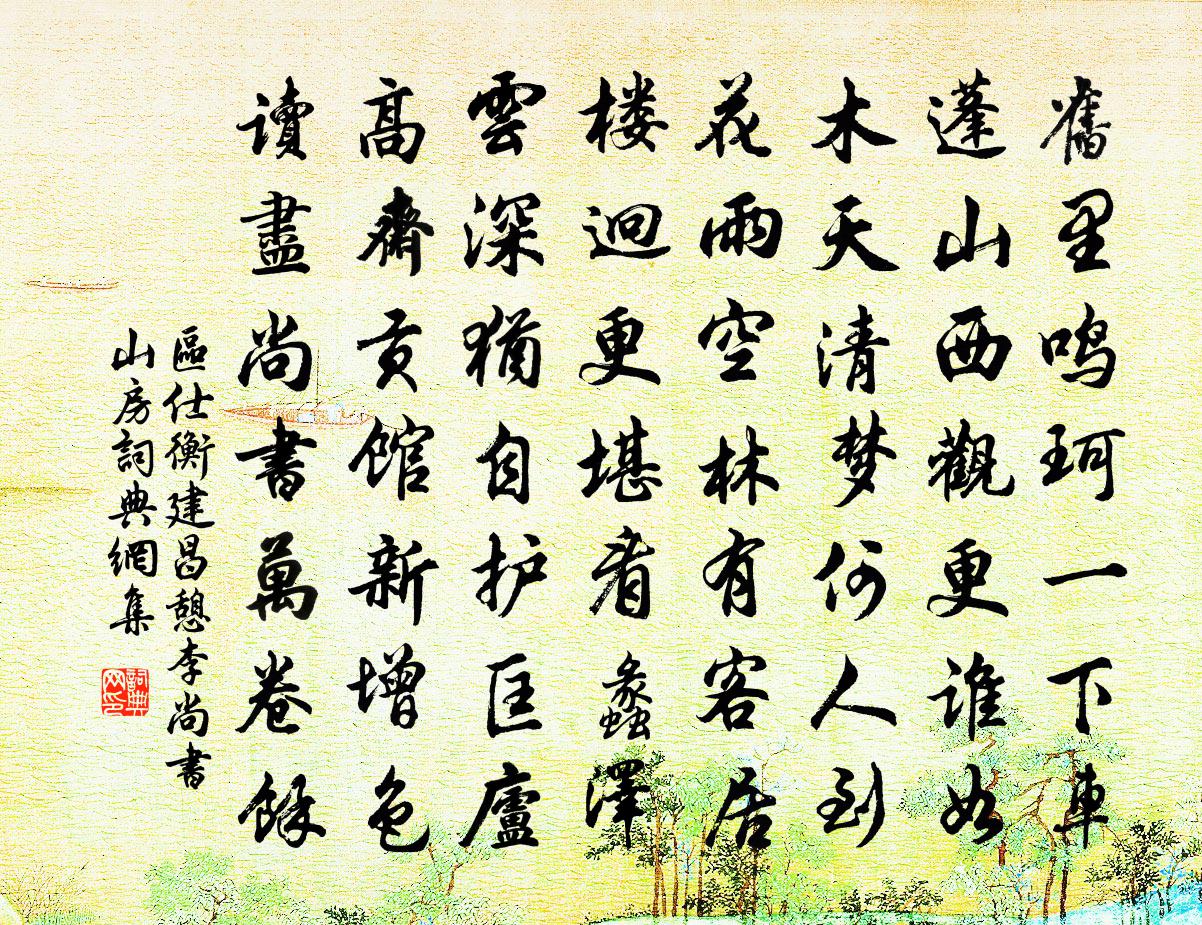 舊里鸣珂一下車
蓬山西觀更誰如
木天清梦何人到
花雨空林有客居
楼迥更堪看蠡澤
雲深猶自护匡廬
高齋贡館新增色
讀盡尚書萬卷餘
區仕衡建昌憩李尚書
山房詞典網集
詞典网印